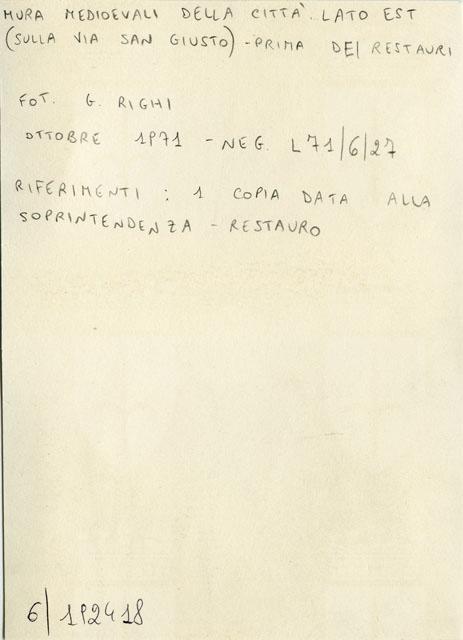 MURA MEDIOEVALI DELLA CITTÀ. LATO EST
(SULLA VIA SAN GIUSTO) - PRIMA DEI RESTAURI
FOT. G. RIGHI
OTTOBRE 1971 - NEG. L71/6/27
RIFERIMENTI : 1 COPIA DATA ALLA
SOPRINTENDENZA - RESTAURO
6/192418